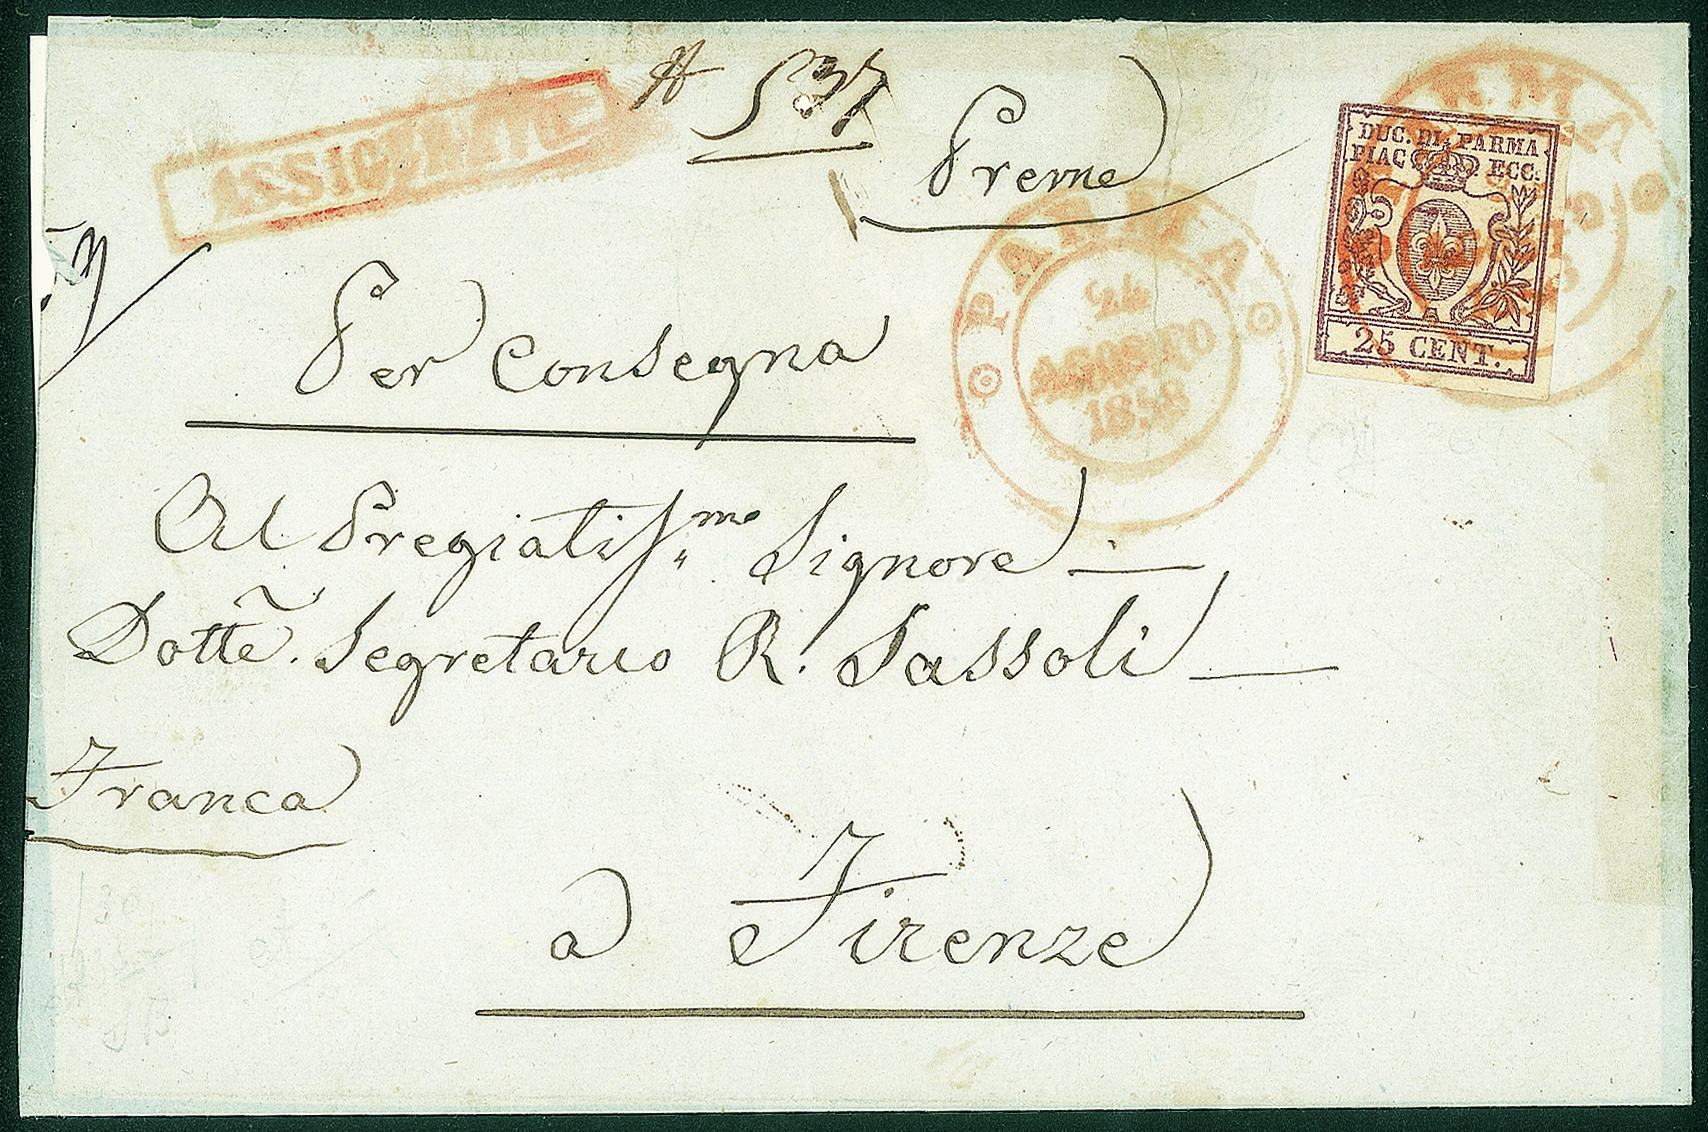 ASSICURATE
537
Preme
DUC. DI. PARMA
PIAC. ECC.
25 CENT.
PARMA
24
AGOSTO
1858
Per Consegna
Al Pregiatiss.mo Signore
Dotte. Segretario R. Sassoli
Franca
a Firenze